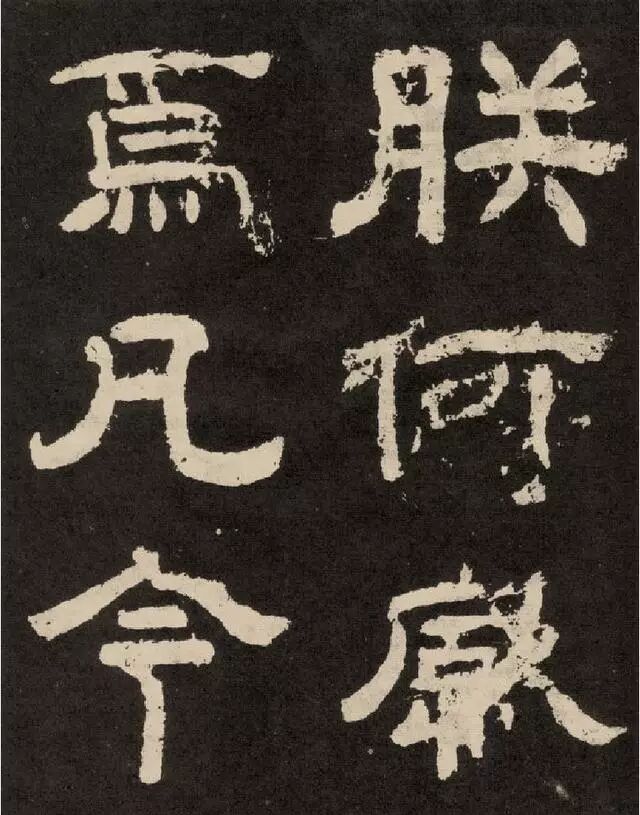 朕何戚
焉凡今